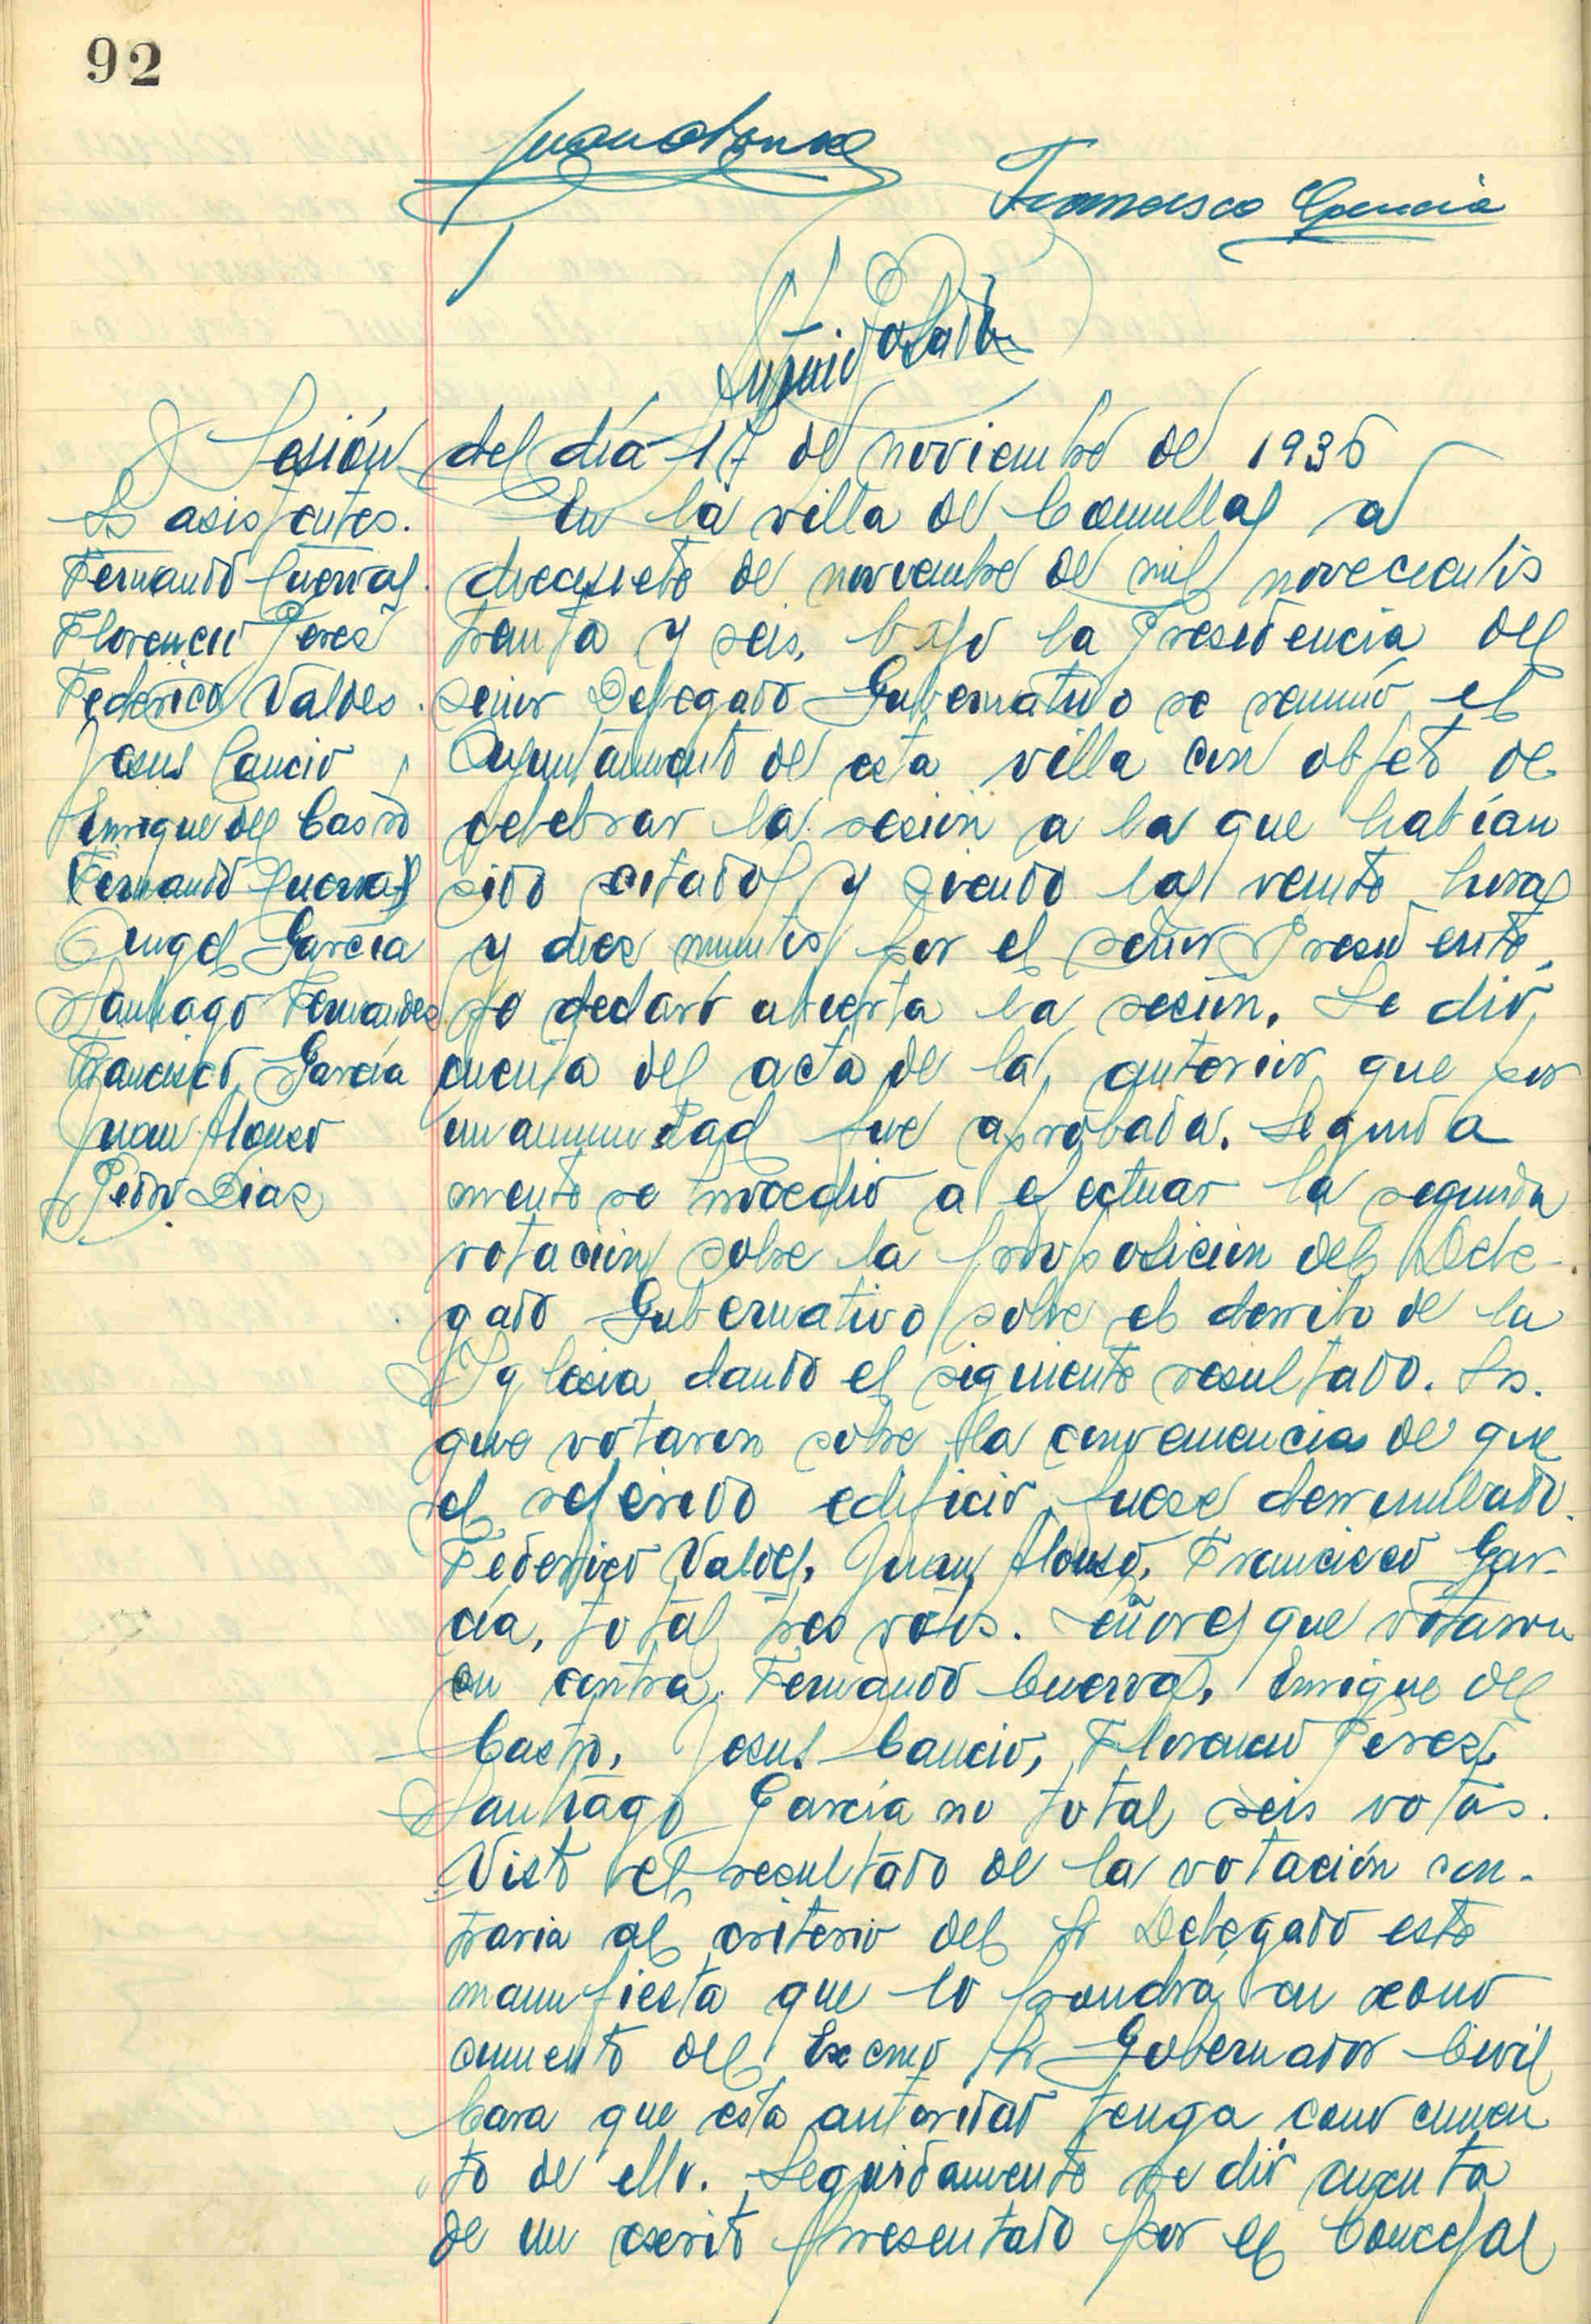 92
Juan Alonso
Francisco Garcia
Sesión del día 17 de noviembre de 1936
Srs asistentes.
Fernando Cuerras.
Florencio Perez
Federico Valdes.
Jesus Cancio
Enrique del Castro
(Fernando Cuerras)
Angel García
Santiago Fernandez
Francisco García
Juan Alonso
Pedro Diaz
En la villa de Comillas a
diecisiete de noviembre de mil novecientos
treinta y seis, bajo la Presidencia del
señor Delegado Gubernativo se reunió el
Ayuntamiento de esta villa con objeto de
celebrar la sesión a la que habían
sido citados y siendo las veinte horas
y diez minutos por el señor Presidente,
se declaró abierta la sesión. Se dió
cuenta del acta de la anterior que por
unanimidad fue aprobada. Seguida
mente se procedió a efectuar la segunda
votación sobre la proposición del Dele-
gado Gubernativo sobre el derribo de la
Yglesia dando el siguiente resultado. Srs.
que votaron sobre la conveniencia de que
el referido edificio fuese derrumbado.
Federico Valdes, Juan Alonso, Francisco Gar-
cía, total tres votos. Señores que votaron
en contra, Fernando Cuerras, Enrique del
Castro, Jesus Cancio, Florencio Pérez,
Santiago García no total seis votos.
Visto el resultado de la votación con-
traria al criterio del Sr Delegado este
manifiesta que lo pondrá en cono
cimiento del Excmo Sr Gobernador Civil
para que esta autoridad tenga conocimien
to de ello. Seguidamente se dió cuenta
de un escrito presentado por el Concejal